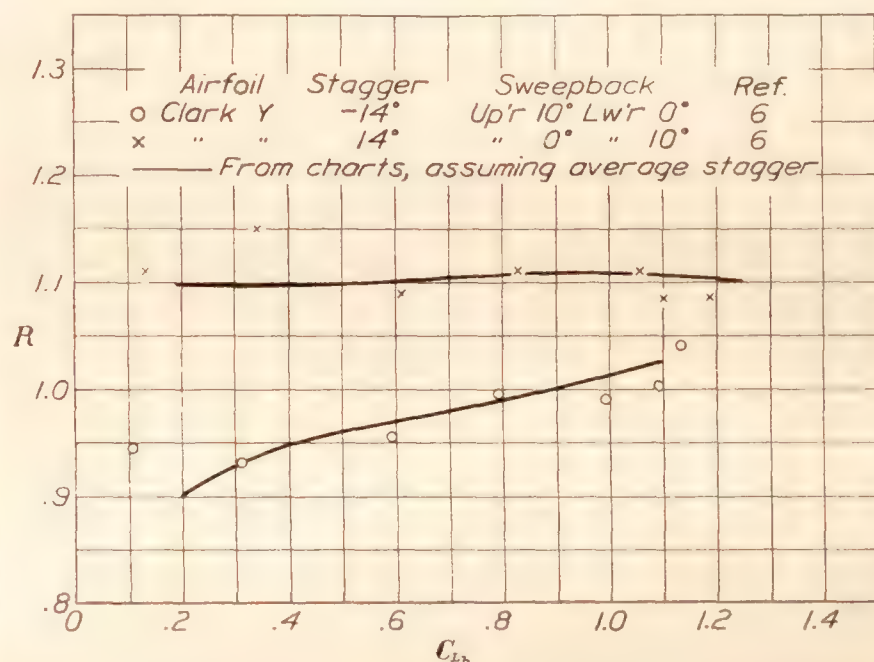 1.3
Airfoil Stagger Sweepback Ref.
o Clark Y -14° Up'r 10° Lw'r 0° 6
x " " 14° " 0° " 10° 6
From charts, assuming average stagger
1.2
1.1
R
1.0
.9
.8
0 .2 .4 .6 .8 1.0 1.2 1.4
C_{L_b}